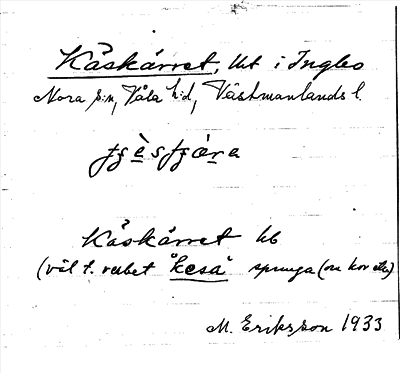 Kåskärret, lht i Ingbo
Nora s:n, Våla h:d, Västmanlands l.
Kåskärret hb
(väl t. verbet "kesa" springa (om kor etc)
M. Eriksson 1933